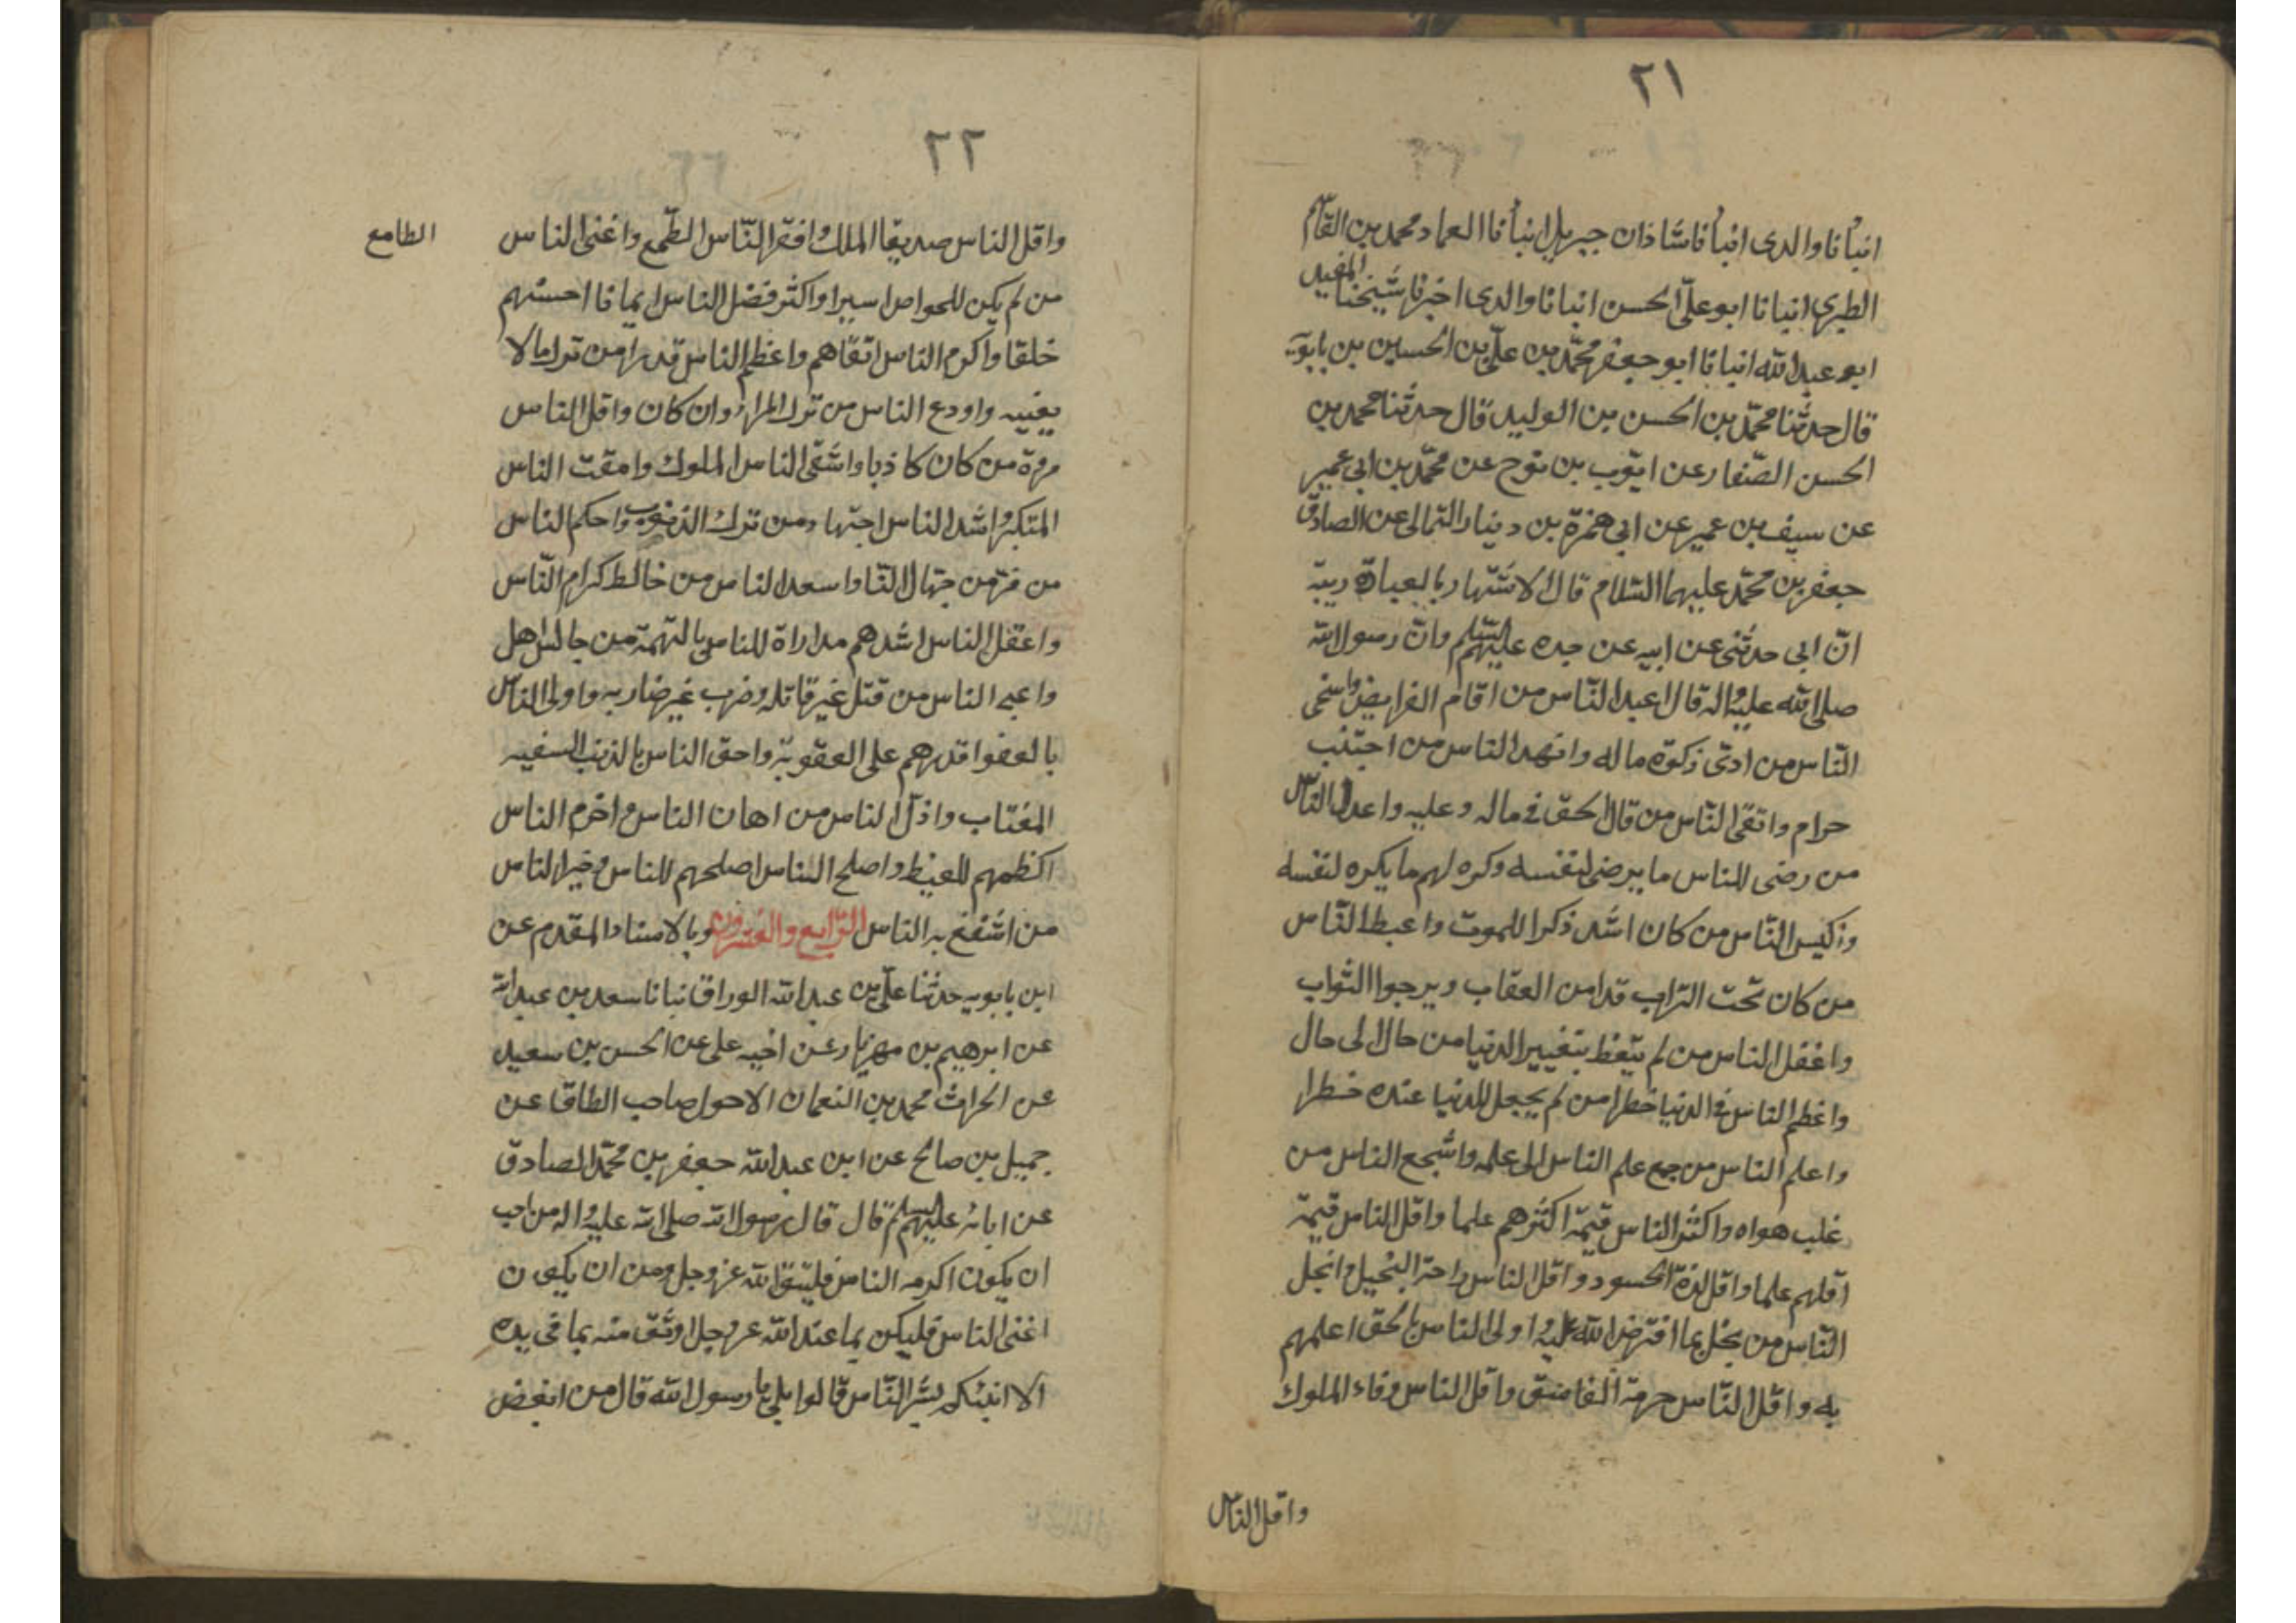 ٢١
انبأنا والدى انبأنا شاذان جبريل انبأنا العماد محمد بن القاسم
الطبرى انبانا ابو على الحسن انبانا والدى اخبرنا شيخنا المفيد
ابو عبد الله انبانا ابو جعفر محمد بن على بن الحسين بن بابويه
قال حدثنا محمد بن الحسن بن الوليد قال حدثنا محمد بن
الحسن الصفار عن ايوب بن نوح عن محمد بن ابى عمير
عن سيف بن عمير عن ابى حمزة بن دينار الثمالى عن الصادق
جعفر بن محمد عليهما السلام قال الاشتهار بالعبادة ريبة
ان ابى حدثنى عن ابيه عن جده عليهم السلم وان رسول الله
صلى الله عليه واله قال اعبد الناس من اقام الفرايض واسخى
الناس من ادى زكوة ماله وازهد الناس من اجتنب
حرام واتقى الناس من قال الحق فى ماله وعليه واعدل الناس
من رضى للناس ما يرضى لنفسه وكره لهم ما يكره لنفسه
واكيس الناس من كان اشد ذكرا للموت واغبط الناس
من كان تحت التراب قد امن العقاب ويرجوا الثواب
واغفل الناس من لم يتعظ بتغيير الدنيا من حال الى حال
واعظم الناس فى الدنيا خطرا من لم يجعل للدنيا عنده خطرا
واعلم الناس من جمع علم الناس الى علمه واشجع الناس من
غلب هواه واكثر الناس قيمة اكثرهم علما واقل الناس قيمة
اقلهم علما واقل لذة الحسود واقل الناس راحة البخيل وابخل
الناس من بخل بما افترض الله عليه واولى الناس بالحق اعلمهم
به واقل الناس حرمة الفاسق واقل الناس وفاء الملوك
واقل الناس
٢٢
واقل الناس صديقا الملك وافقر الناس الطمع واغنى الناس
الطامع
من لم يكن للحواص اسيرا واكثر فضل الناس ايمانا احسنهم
خلقا واكرم الناس اتقاهم واعظم الناس قدرا من ترك ما لا
يعنيه واودع الناس من ترك المراء وان كان واقل الناس
مروة من كان كاذبا واشقى الناس الملوك وامقت الناس
المتكبر واشد الناس اجتهادا من ترك الذنوب واحكم الناس
من فر من جهال الناس واسعد الناس من خالط كرام الناس
واعقل الناس اشدهم مداراة للناس بالتهمة من جالس اهل
واعبى الناس من قتل غير قاتله وضرب غير ضاربه واولى الناس
بالعفو اقدرهم على العقوبة واحق الناس بالذنب السفيه
المغتاب واذل الناس من اهان الناس واحزم الناس
اكظمهم للغيظ واصلح الناس اصلحهم للناس وخير الناس
من انتفع به الناس الرابع والعشرون وبالاسناد المقدم عن
ابن بابويه حدثنا على بن عبد الله الوراق انبانا سعد بن عبد الله
عن ابرهيم بن مهزيار عن اخيه على عن الحسن بن سعيد
عن الحراث محمد بن النعمان الاحول صاحب الطاق عن
جميل بن صالح عن ابن عبد الله جعفر بن محمد الصادق
عن ابائه عليهم السلم قال قال رسول الله صلى الله عليه واله من احب
ان يكون اكرمه الناس فليتق الله عز وجل ومن ان يكون
اغنى الناس فليكن بما عند الله عز وجل اوثق منه بما فى يده
الا انبئكم بشر الناس قالوا بلى يا رسول الله قال من ابغض